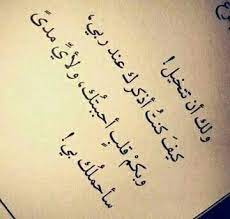 ولك أن تتخيل !
كيفَ كنتُ أذكرك عند ربي،
وبكمْ قلبٍ أحببتُك، ولأيِّ مدىً
سأحملُك بي!